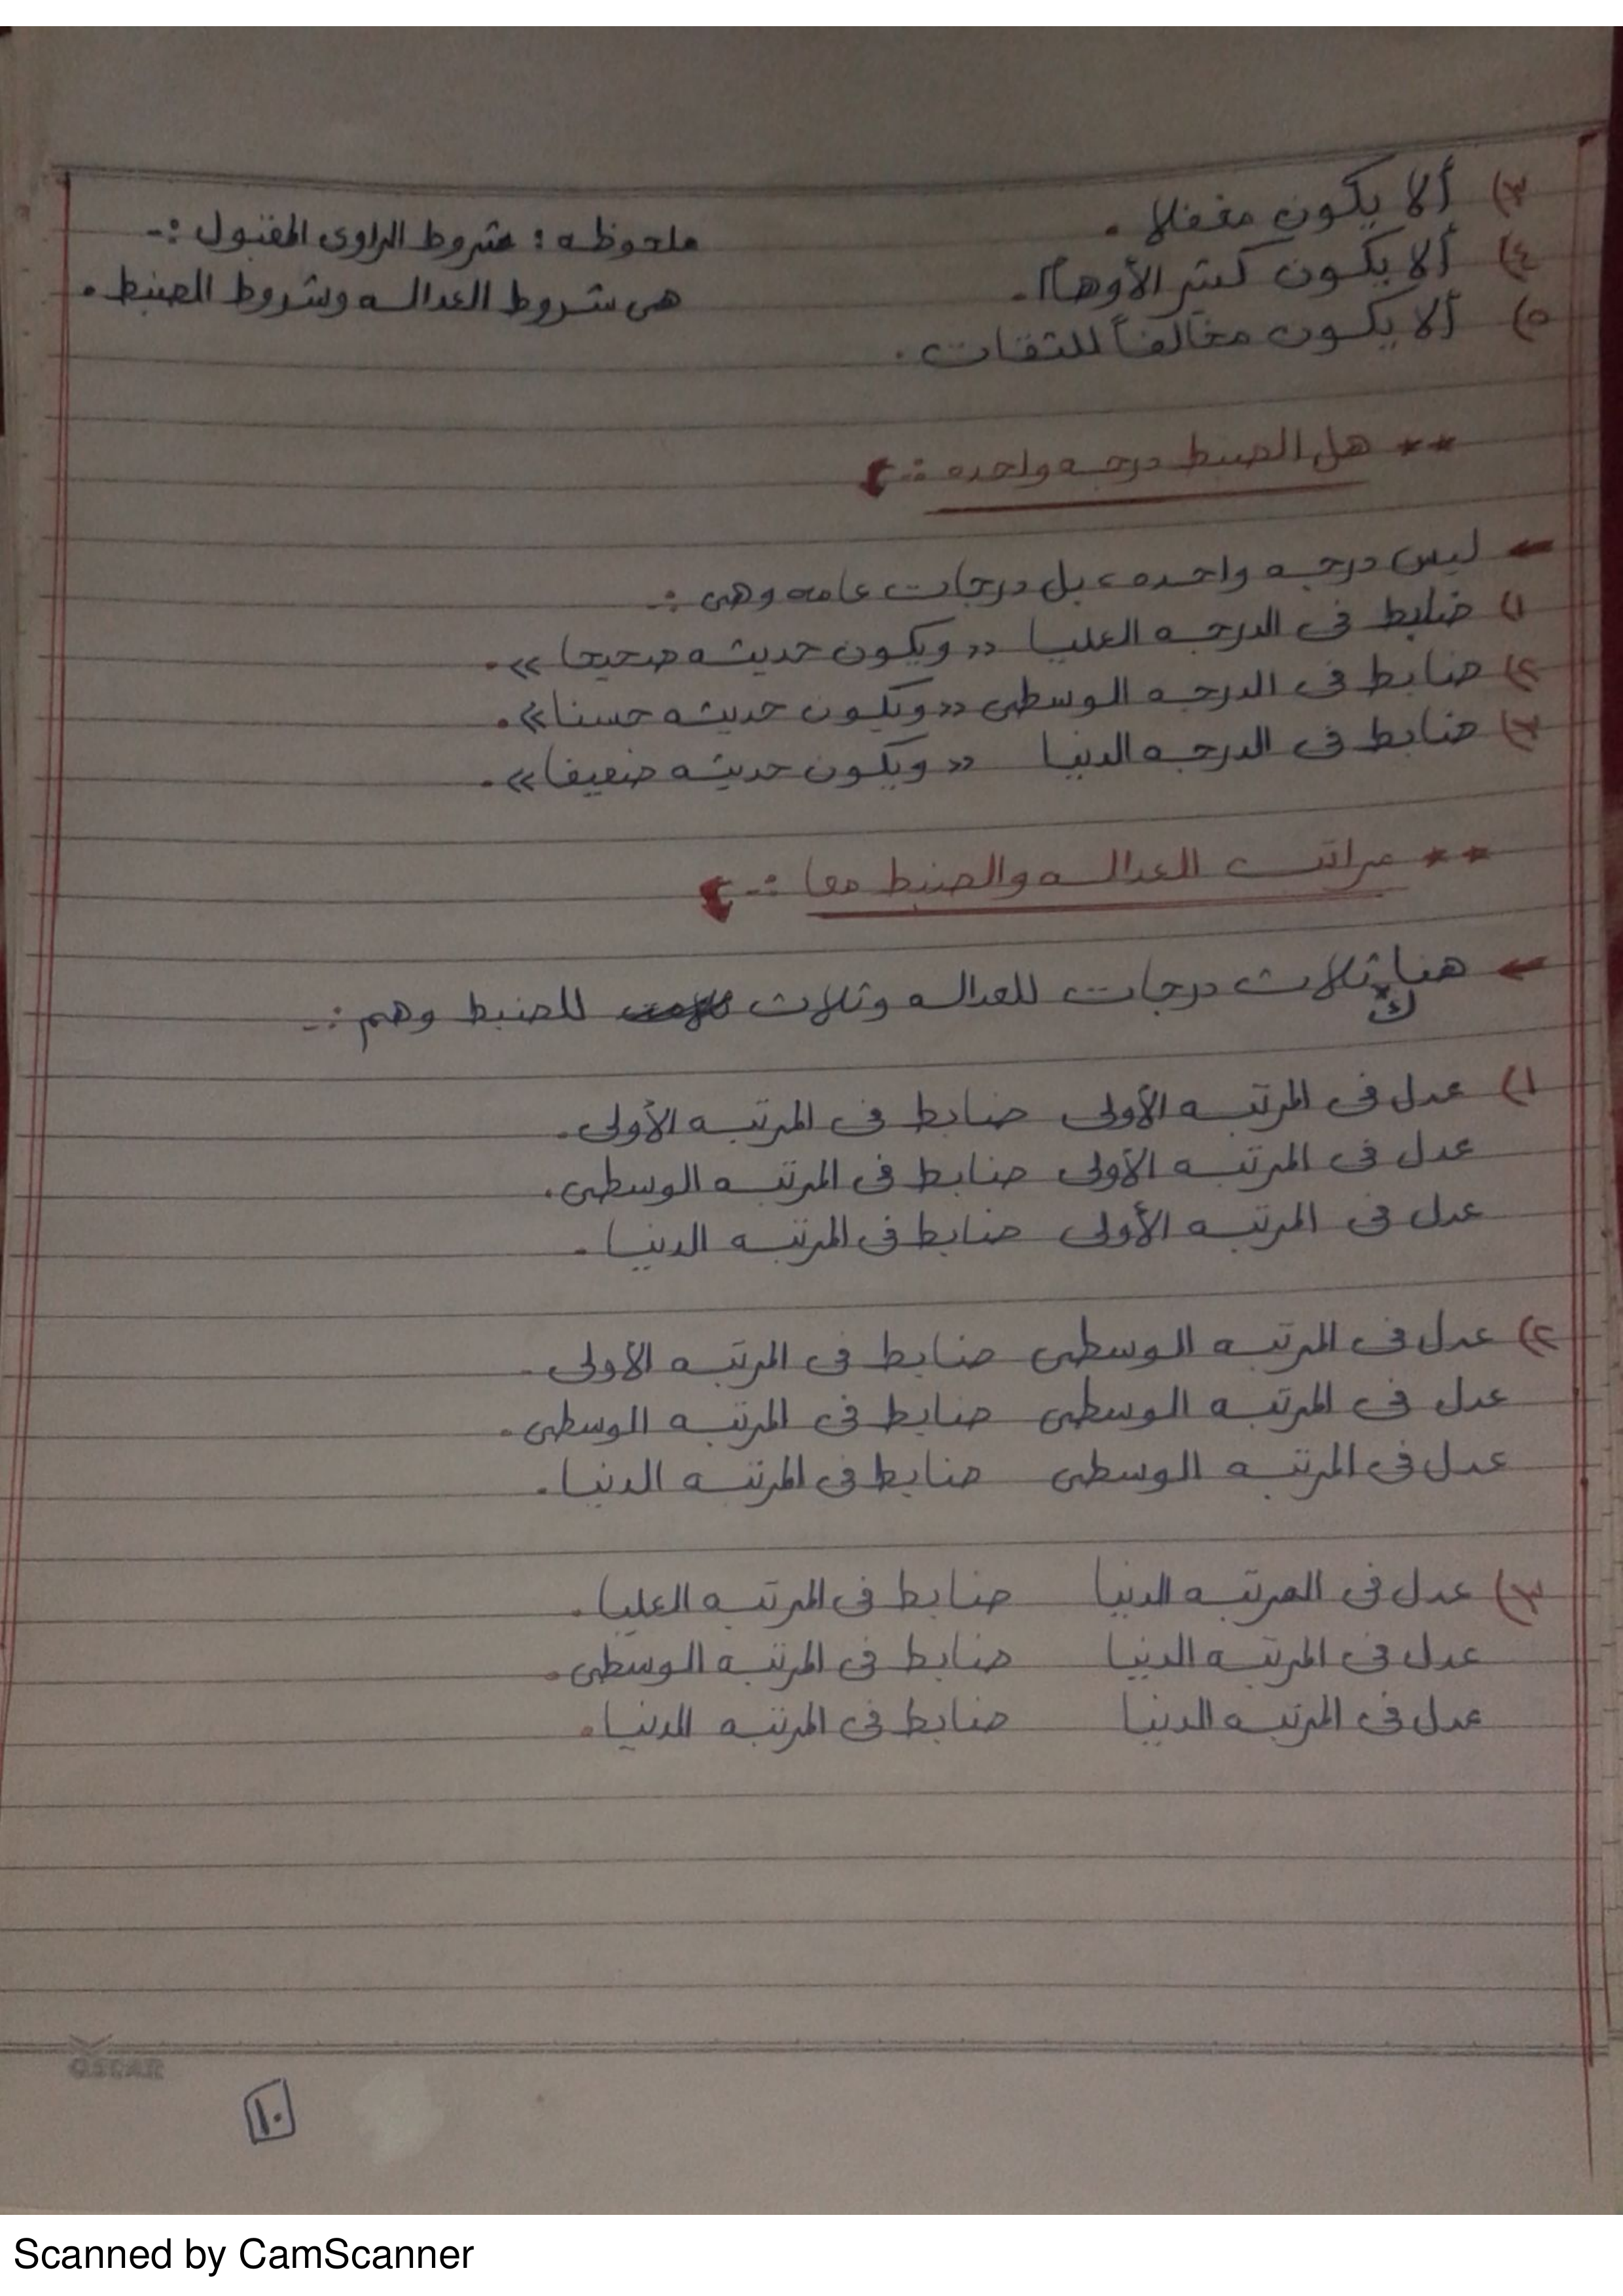 ٣) ألا يكون مغفلا .
٤) ألا يكون كثير الأوهام .
٥) ألا يكون مخالفاً للثقات .
ملحوظه : شروط الراوى المقبول :-
هى شروط العداله وشروط الضبط .
** هل الضبط درجه واحده :-
ليس درجه واحده ، بل درجات عامه وهى :-
١) ضابط فى الدرجه العليا « ويكون حديثه صحيحا » .
٢) ضابط فى الدرجه الوسطى « ويكون حديثه حسنا » .
٣) ضابط فى الدرجه الدنيا « ويكون حديثه ضعيفا » .
** مراتب العداله والضبط معا :-
هناك ثلاث درجات للعداله وثلاث للضبط وهم :-
١) عدل فى المرتبه الأولى ضابط فى المرتبه الأولى .
عدل فى المرتبه الأولى ضابط فى المرتبه الوسطى .
عدل فى المرتبه الأولى ضابط فى المرتبه الدنيا .
٢) عدل فى المرتبه الوسطى ضابط فى المرتبه الأولى .
عدل فى المرتبه الوسطى ضابط فى المرتبه الوسطى .
عدل فى المرتبه الوسطى ضابط فى المرتبه الدنيا .
٣) عدل فى المرتبه الدنيا ضابط فى المرتبه العليا .
عدل فى المرتبه الدنيا ضابط فى المرتبه الوسطى .
عدل فى المرتبه الدنيا ضابط فى المرتبه الدنيا .
OSCAR
١٠
Scanned by CamScanner